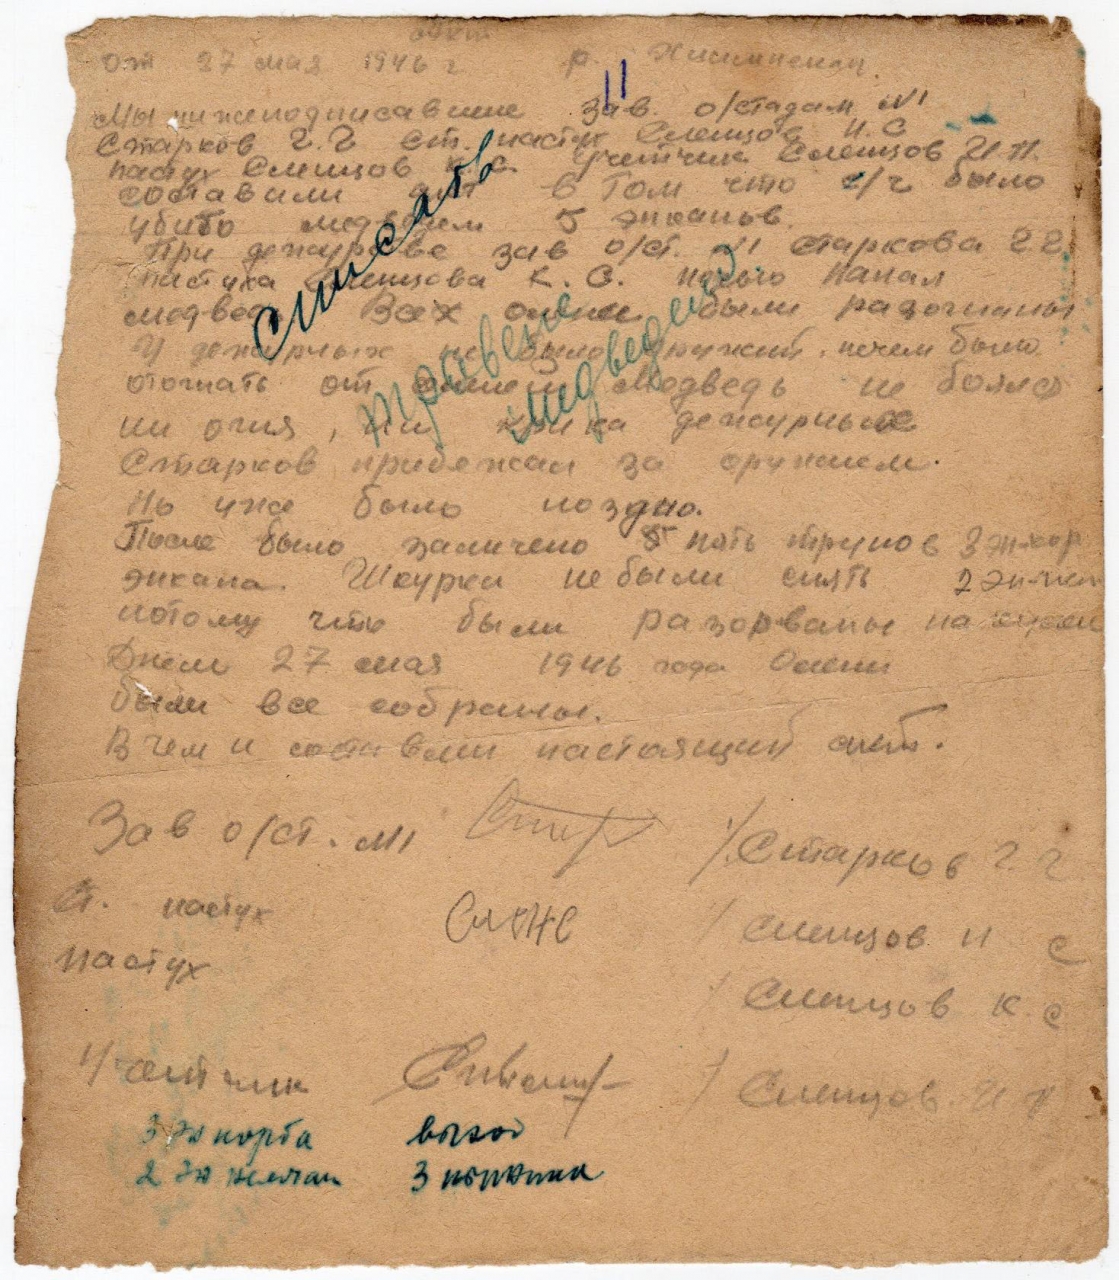 акт
от 27 мая 1946 г р.
11
Мы нижеподписавшие зав. о/стадам №1
Старков Г.Г ст. пастух Слепцов Н.С
пастух Слепцов К.С. Учетчик Слепцов И.Н.
составили акт в том что с/ч было
убито медведем 5 энканов.
При дежурстве зав о/ст. №1 Старкова Г.Г.
пастуха Слепцова К.С. ночью напал
медведь Всех олени были разогнаны
У дежурных не было оружий, нечем было
отогнать от олени Медведь не боялся
ни огня, ни крика дежурных
Старков прибежал за оружием.
Но уже было поздно.
После было заличено 5 пять трупов 3 эн-кор
энкана. Шкурки не были снять 2 эн-
потому что были разорваны на куски
Днем 27 мая 1946 года Олени
были все собраны.
В чем и составили настоящий акт.
Списать
медведицей.
Зав о/ст. №1 / Старков Г Г
Ст. пастух / Слепцов Н С
пастух / Слепцов К.С
Учетчик / Слепцов И Н
3 эн корба выход
2 эн 3